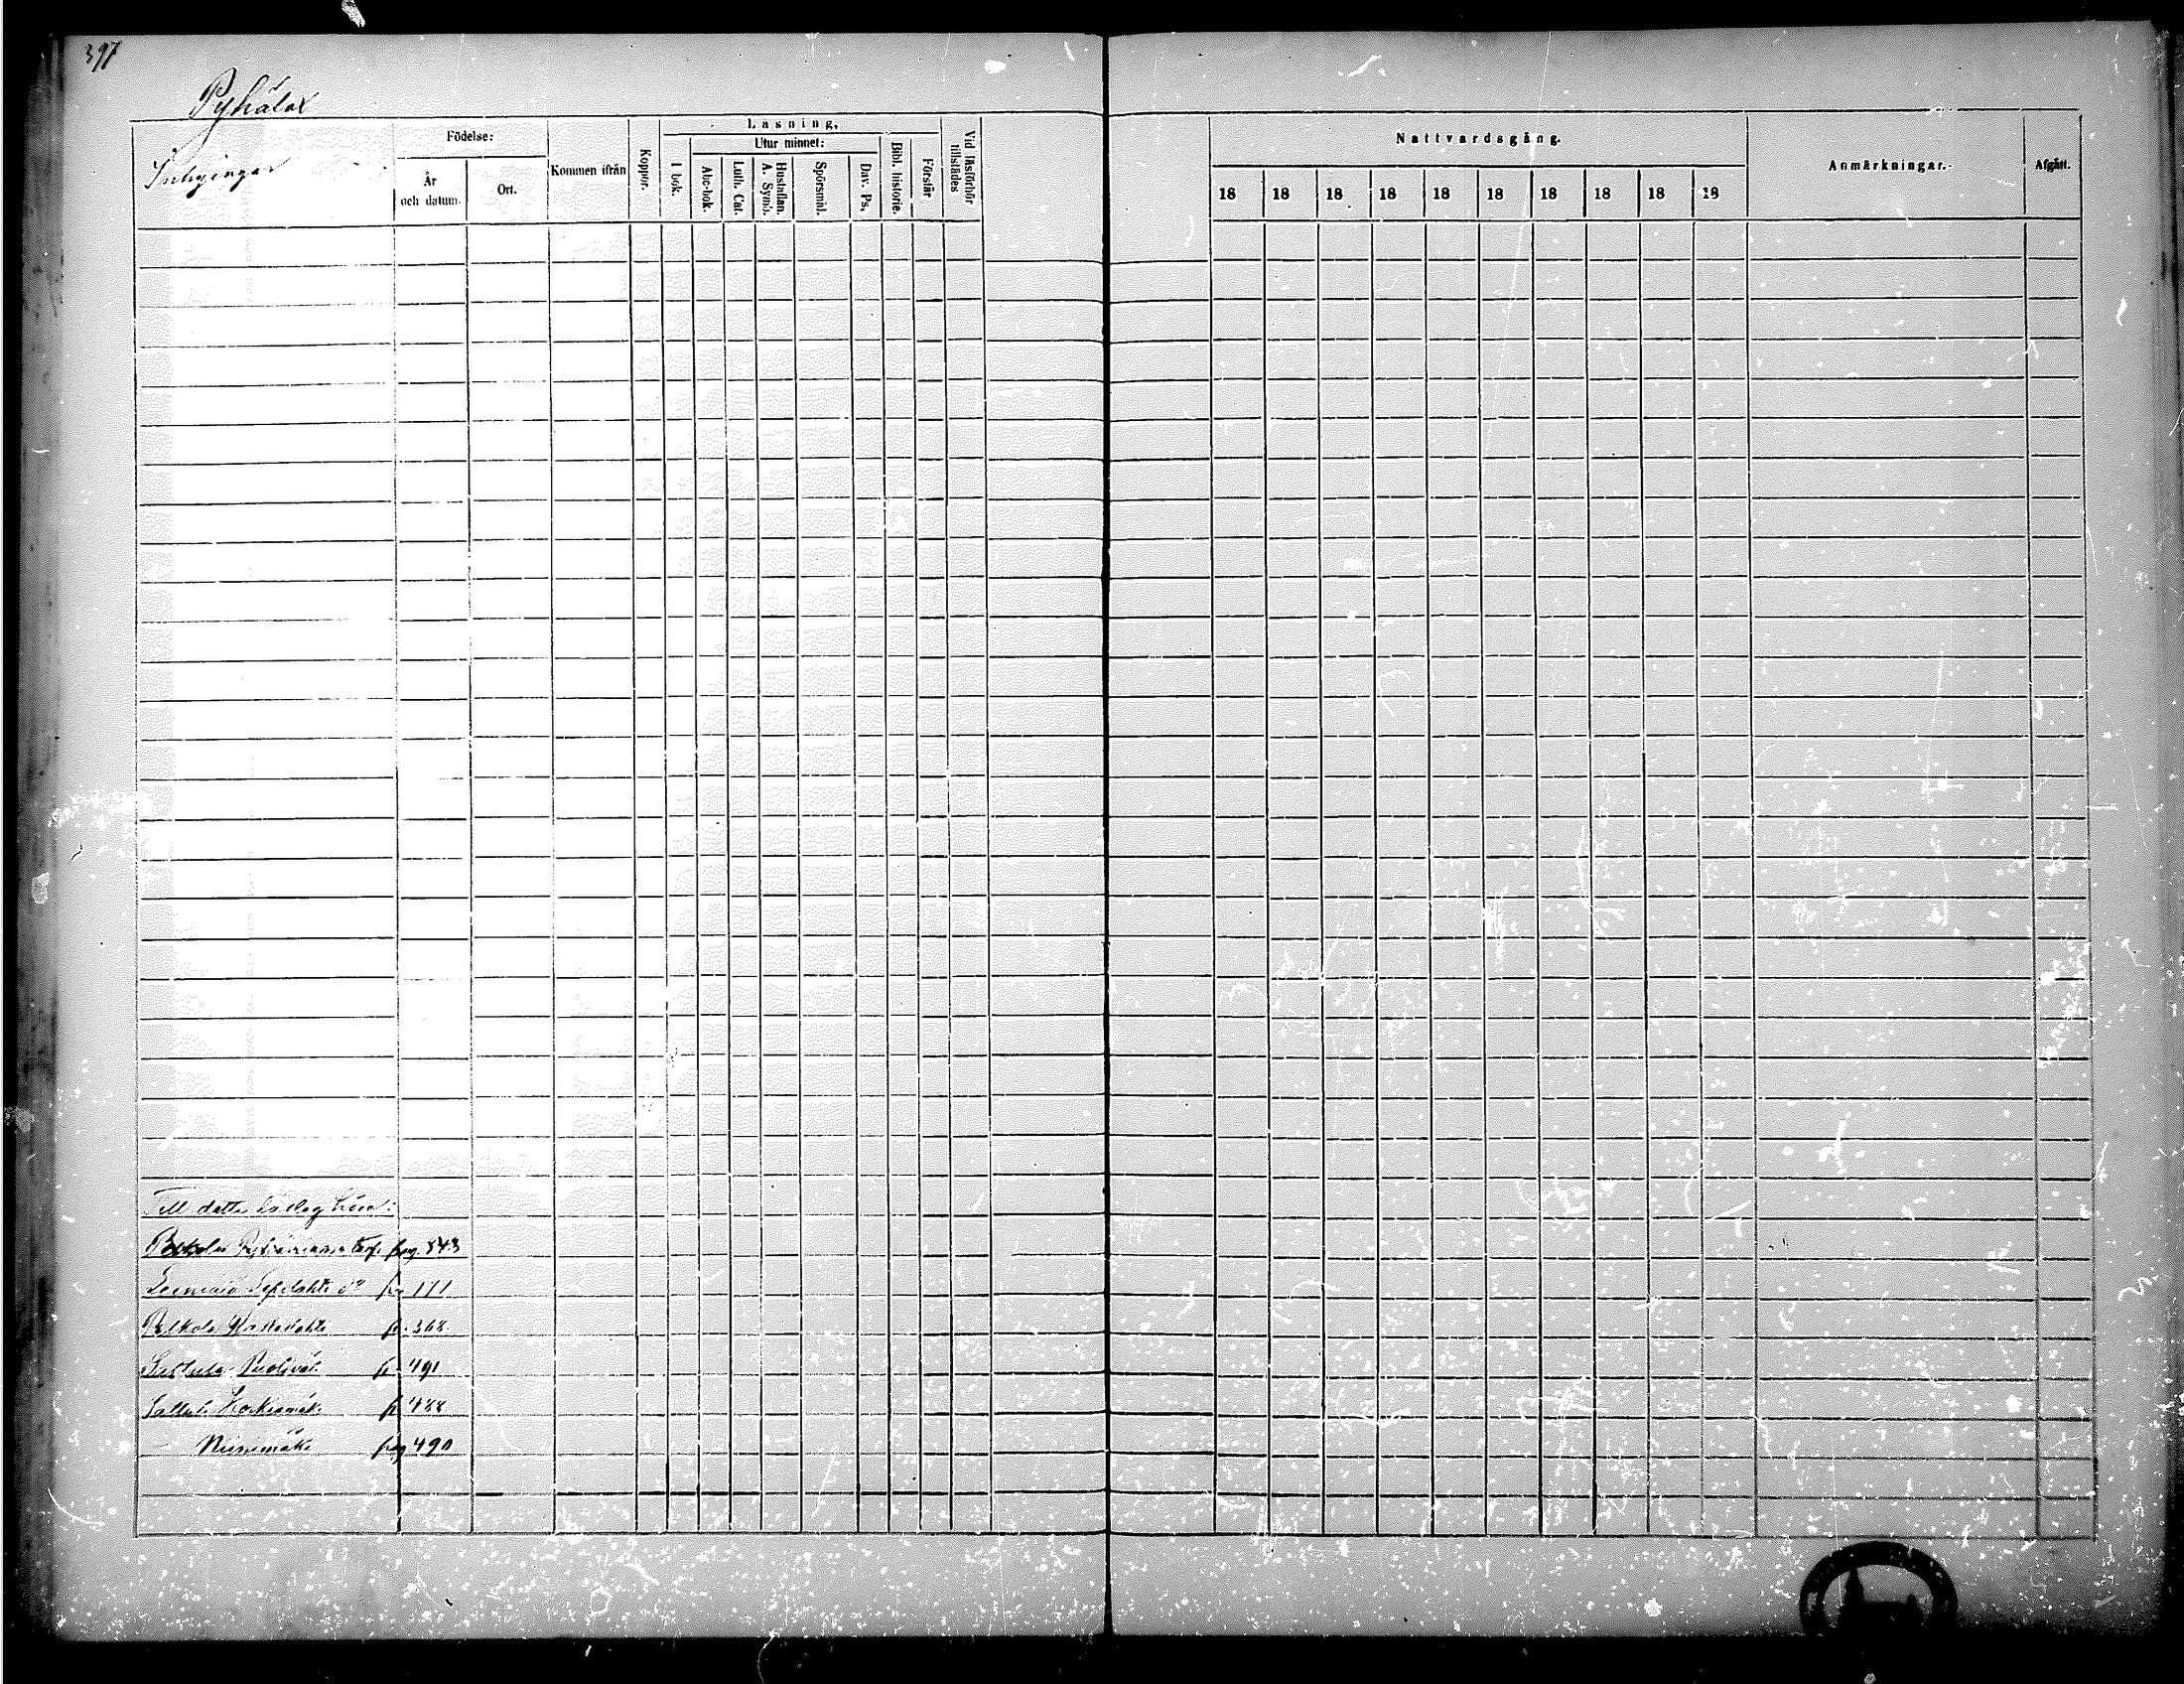 397
Pyhälax
Inhysingar
Födelse:
År och datum.
Ort.
Kommen ifrån
Koppor.
Läsning,
I bok.
Utur minnet:
Abc-bok.
Luth. Cat.
Hustaflan. A. Symb.
Spörsmål.
Dav. Ps.
Bibl. historie.
Förstår
Vid läsförhör tillstädes
Nattvardsgång.
18 18 18 18 18 18 18 18 18 18
Anmärkningar.
Afgått.
Till detta
pag. 543
171
Pelkola p. 368
491
p 488
Niemimäki pag 490